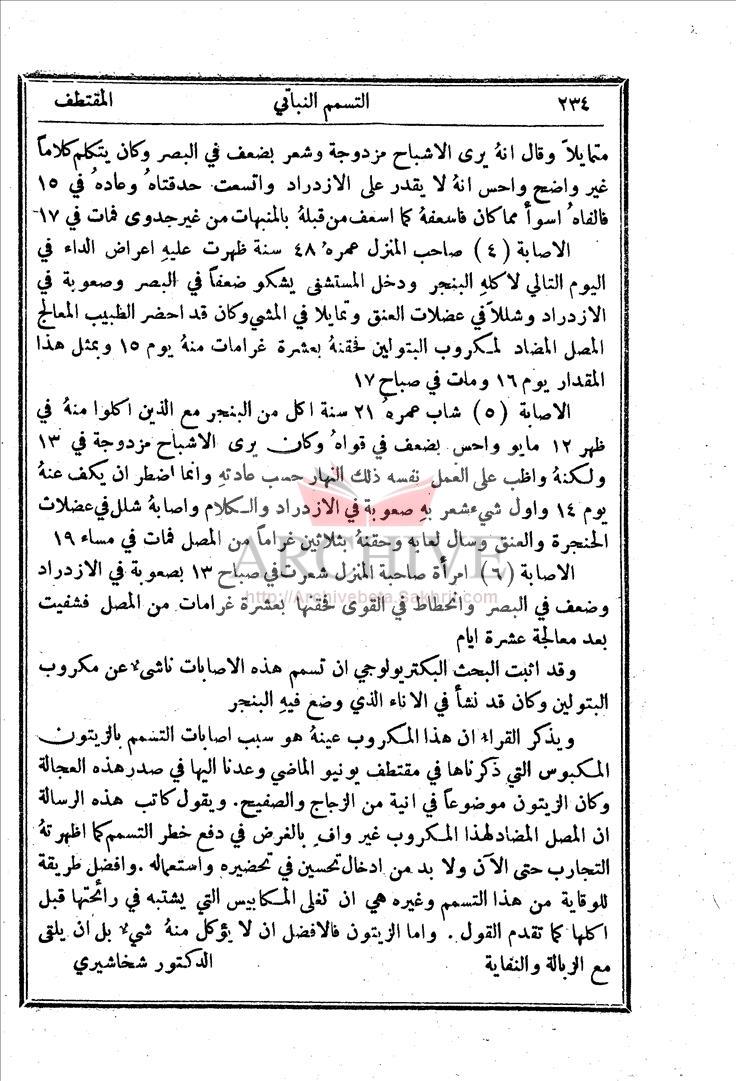 ٢٣٤ التسمم النباتي المقتطف
متمايلاً وقال انهُ يرى الاشباح مزدوجة وشعر بضعف في البصر وكان يتكلم كلاماً
غير واضح واحس انهُ لا يقدر على الازدراد واتسعت حدقتاهُ وعادهُ في ١٥
فالفاهُ اسوأ مما كان فاسعفهُ كما اسعف من قبلهُ بالمنبهات من غير جدوى فمات في ١٧
الاصابة (٤) صاحب المنزل عمرهُ ٤٨ سنة ظهرت عليهِ اعراض الداء في
اليوم التالي لاكلهِ البنجر ودخل المستشفى يشكو ضعفاً في البصر وصعوبة في
الازدراد وشللاً في عضلات العنق وتمايلا في المشي وكان قد احضر الطبيب المعالج
المصل المضاد لمكروب البتولين فحقنهُ بعشرة غرامات منهُ يوم ١٥ وبمثل هذا
المقدار يوم ١٦ ومات في صباح ١٧
الاصابة (٥) شاب عمرهُ ٢١ سنة اكل من البنجر مع الذين اكلوا منهُ في
ظهر ١٢ مايو واحس بضعف في قواهُ وكان يرى الاشباح مزدوجة في ١٣
ولكنهُ واظب على العمل نفسه ذلك النهار حسب عادتهِ وانما اضطر ان يكف عنهُ
يوم ١٤ واول شيء شعر بهِ صعوبة في الازدراد والكلام واصابهُ شلل في عضلات
الحنجرة والعنق وسال لعابه وحقنهُ بثلاثين غراماً من المصل فمات في مساء ١٩
ARCHIVE
الاصابة (٦) امرأة صاحبة المنزل شعرت في صباح ١٣ بصعوبة في الازدراد
http://Archivebeta.Sakhrit.com
وضعف في البصر وانحطاط في القوى فحقنها بعشرة غرامات من المصل فشفيت
بعد معالجة عشرة ايام
وقد اثبت البحث البكتريولوجي ان تسمم هذه الاصابات ناشىء عن مكروب
البتولين وكان قد نشأ في الاناء الذي وضع فيهِ البنجر
ويذكر القراء ان هذا المكروب عينهُ هو سبب اصابات التسمم بالزيتون
المكبوس التي ذكرناها في مقتطف يونيو الماضي وعدنا اليها في صدر هذه العجالة
وكان الزيتون موضوعاً في انية من الزجاج والصفيح. ويقول كاتب هذه الرسالة
ان المصل المضاد لهذا المكروب غير وافٍ بالغرض في دفع خطر التسمم كما اظهرتهُ
التجارب حتى الآن ولا بد من ادخال تحسين في تحضيره واستعماله. وافضل طريقة
للوقاية من هذا التسمم وغيره هي ان تغلى المكابيس التي يشتبه في رائحتها قبل
اكلها كما تقدم القول. واما الزيتون فالافضل ان لا يؤكل منهُ شيء بل ان يلقى
مع الزبالة والنفاية الدكتور شخاشيري